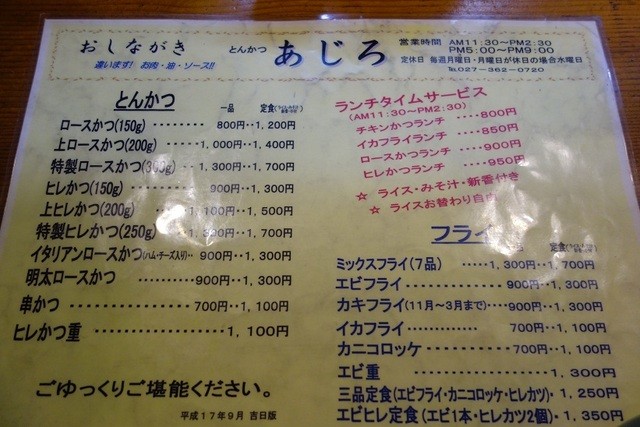 おしながき
違います! お肉・油・ソース!!
とんかつ あじろ
営業時間 AM11:30～PM2:30
PM5:00～PM9:00
定休日 毎週月曜日・月曜日が休日の場合水曜日
℡027-362-0720
とんかつ 一品 定食
ロースかつ(150g) ‥‥‥‥ 800円‥1,200円
上ロースかつ(200g) ‥‥‥1,000円‥1,400円
特製ロースかつ(300g) 1,300円‥1,700円
ヒレかつ(150g) 900円‥1,300円
上ヒレかつ(200g) 1,100円‥1,500円
特製ヒレかつ(250g) 1,300円‥1,700円
イタリアンロースかつ(ハム・チーズ入り)‥ 900円‥1,300円
明太ロースかつ ‥‥‥‥‥900円‥1,300円
串かつ ‥‥‥‥‥‥‥ 700円‥1,100円
ヒレかつ重 ‥‥‥‥‥‥‥‥1,100円
ごゆっくりご堪能ください。
平成17年9月 吉日版
ランチタイムサービス
(AM11:30～PM2:30)
チキンかつランチ ‥‥800円
イカフライランチ ‥‥850円
ロースかつランチ ‥‥900円
ヒレかつランチ ‥‥950円
☆ ライス・みそ汁・新香付き
☆ ライスお替わり自由
フライ 一品 定食
ミックスフライ(7品) ‥‥‥1,300円‥1,700円
エビフライ‥‥‥‥‥‥900円‥1,300円
カキフライ(11月～3月まで)‥‥900円‥1,300円
イカフライ‥‥‥‥‥‥ 700円‥1,100円
カニコロッケ‥‥‥‥‥‥700円‥1,100円
エビ重 ‥‥‥‥‥‥‥‥‥1,300円
三品定食(エビフライ・カニコロッケ・ヒレカツ)・1,250円
エビヒレ定食(エビ1本・ヒレカツ2個)・1,350円